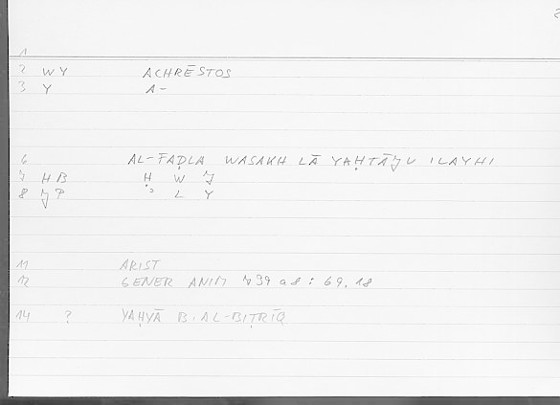 1
2 WY ACHRĒSTOS
3 Y A-
6 AL-FAḌLA WASAKH LĀ YAḤTĀJU ILAYHI
7 HB Ḥ W J
8 JP ʾ L Y
11 ARIST
12 GENER ANIM 739 a8 : 69.18
14 ? YAḤYĀ B. AL-BIṬRĪQ